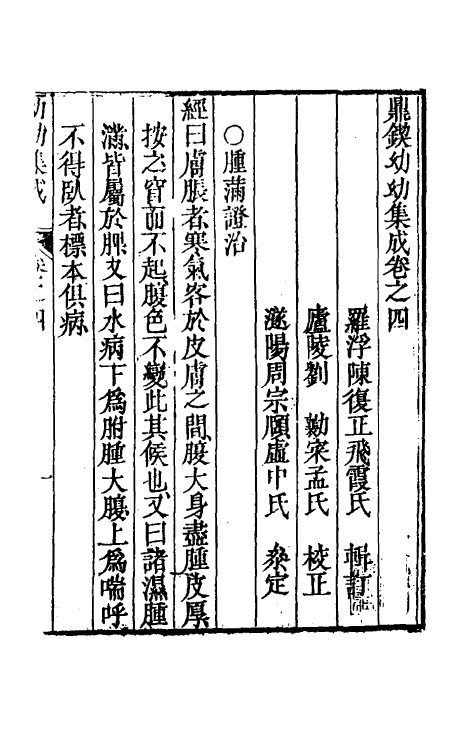 鼎鍥幼幼集成卷之四
羅浮陳復正飛霞氏 輯訂
廬陵劉 勷宋孟氏 校正
遂陽周宗頤虛中氏 叅定
○腫滿證治
經曰膚脹者寒氣客於皮膚之間腹大身盡腫皮厚
按之窅而不起腹色不變此其候也又曰諸濕腫
滿皆屬於脾又曰水病下為胕腫大腹上為喘呼
不得臥者標本俱病
幼幼集成 卷之四 一